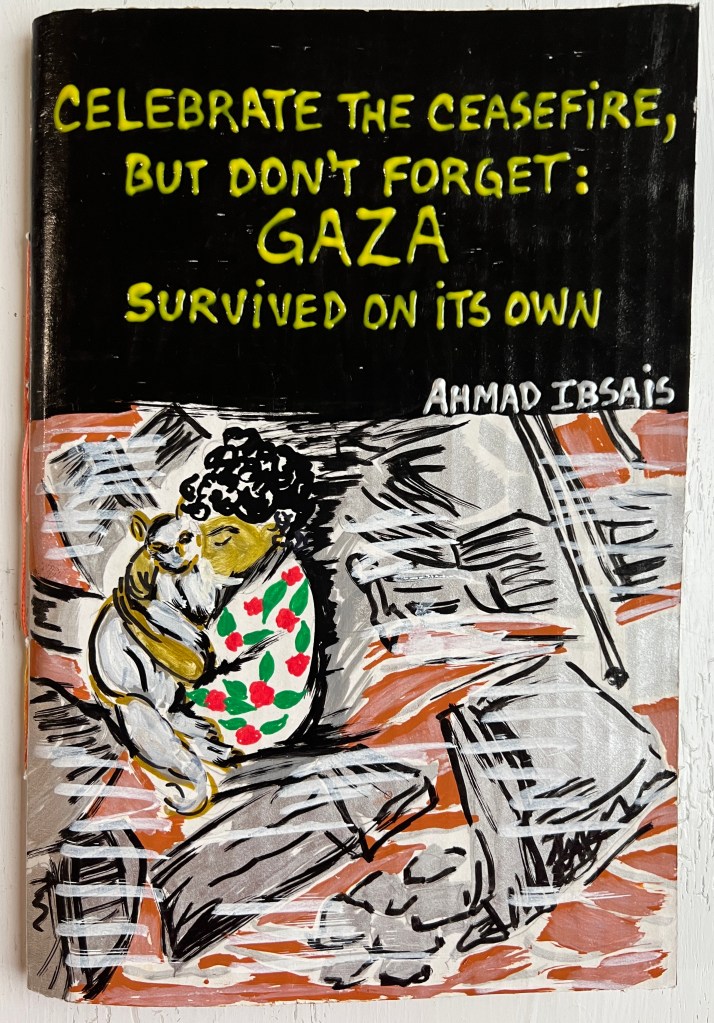 CELEBRATE THE CEASEFiRE,
BUT DON'T FORGET:
GAZA
SURViVED ON iTS OWN
AHMAD IBSAiS